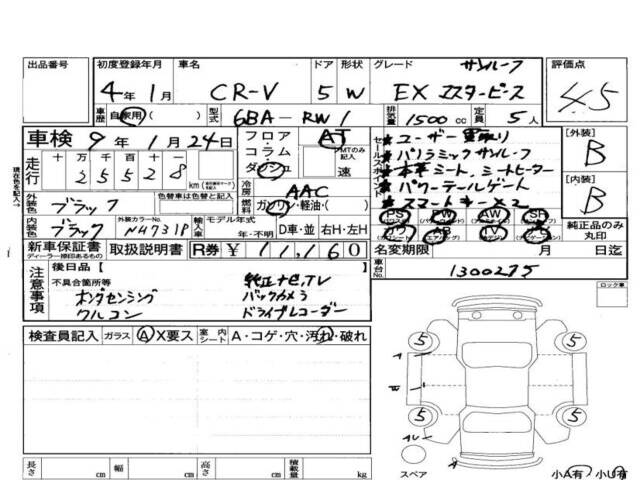 出品番号 初度登録年月 車名 ドア 形状 グレード サンルーフ 評価点
4年 1月 CR-V 5 W EX マスターピース 4.5
車歴 自家用( ) 型式 6BA-RW1 排気量 1500cc 定員 5人
車検 9年 1月 24日 フロア・コラム・ダッシュ AT MTのみ記入 速
セールスポイント
★ユーザー買取り
★パノラミックサンルーフ
★本革シート、シートヒーター
★パワーテールゲート
★スマートキー×2
[外装] B
[内装] B
現在色を記入→
走行 十 万 千 百 十 一
2 5 5 2 8 km
外装色 ブラック 色替車は色替と記入
冷房 AAC
燃料 ガソリン・軽油・( )
内装色 ブラック 外装カラーNo. NH731P 輸入車 モデル年式 年・不明 D車・並 右H・左H
PS PW AW SR
AB TV
純正品のみ丸印
新車保証書 ディーラー捺印あるもの 取扱説明書 R券 ¥11,160 名変期限 月 日迄
注意事項 後日品[ ] 車台No. 1300275
不具合箇所等
ホンダセンシング
クルコン
純正ナビ,TV
バックカメラ
ドライブレコーダー
ロック車
検査員記入 ガラス A X要ス 室内シート A・コゲ・穴・汚れ・破れ
5 5
5 5
スペア
A
小A有・小U有
長さ cm 幅 cm 高さ cm 積載量 kg